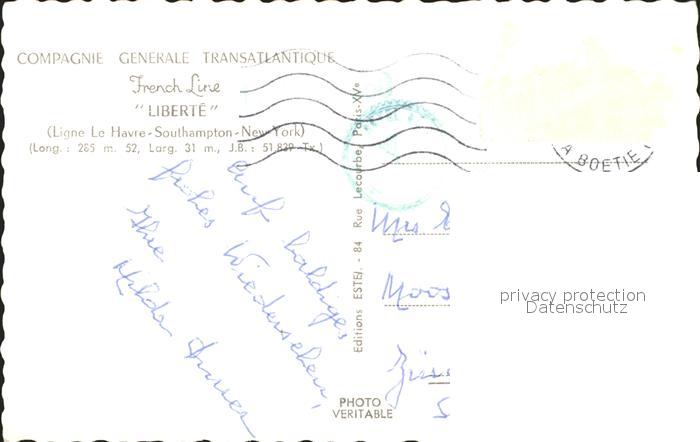 COMPAGNIE GENERALE TRANSATLANTIQUE
French Line
"LIBERTÉ"
(Ligne Le Havre-Southampton-New York)
(Long.: 285 m. 52, Larg. 31 m., J.B.: 51.839 Tx.)
auf baldiges
frohes Wiedersehen,
Ihre
Hilda
Editions ESTEL - 84 Rue Lecourbe, Paris-XVe
A BOETIE
Mrs
Moos
PHOTO
VERITABLE
privacy protection
Datenschutz